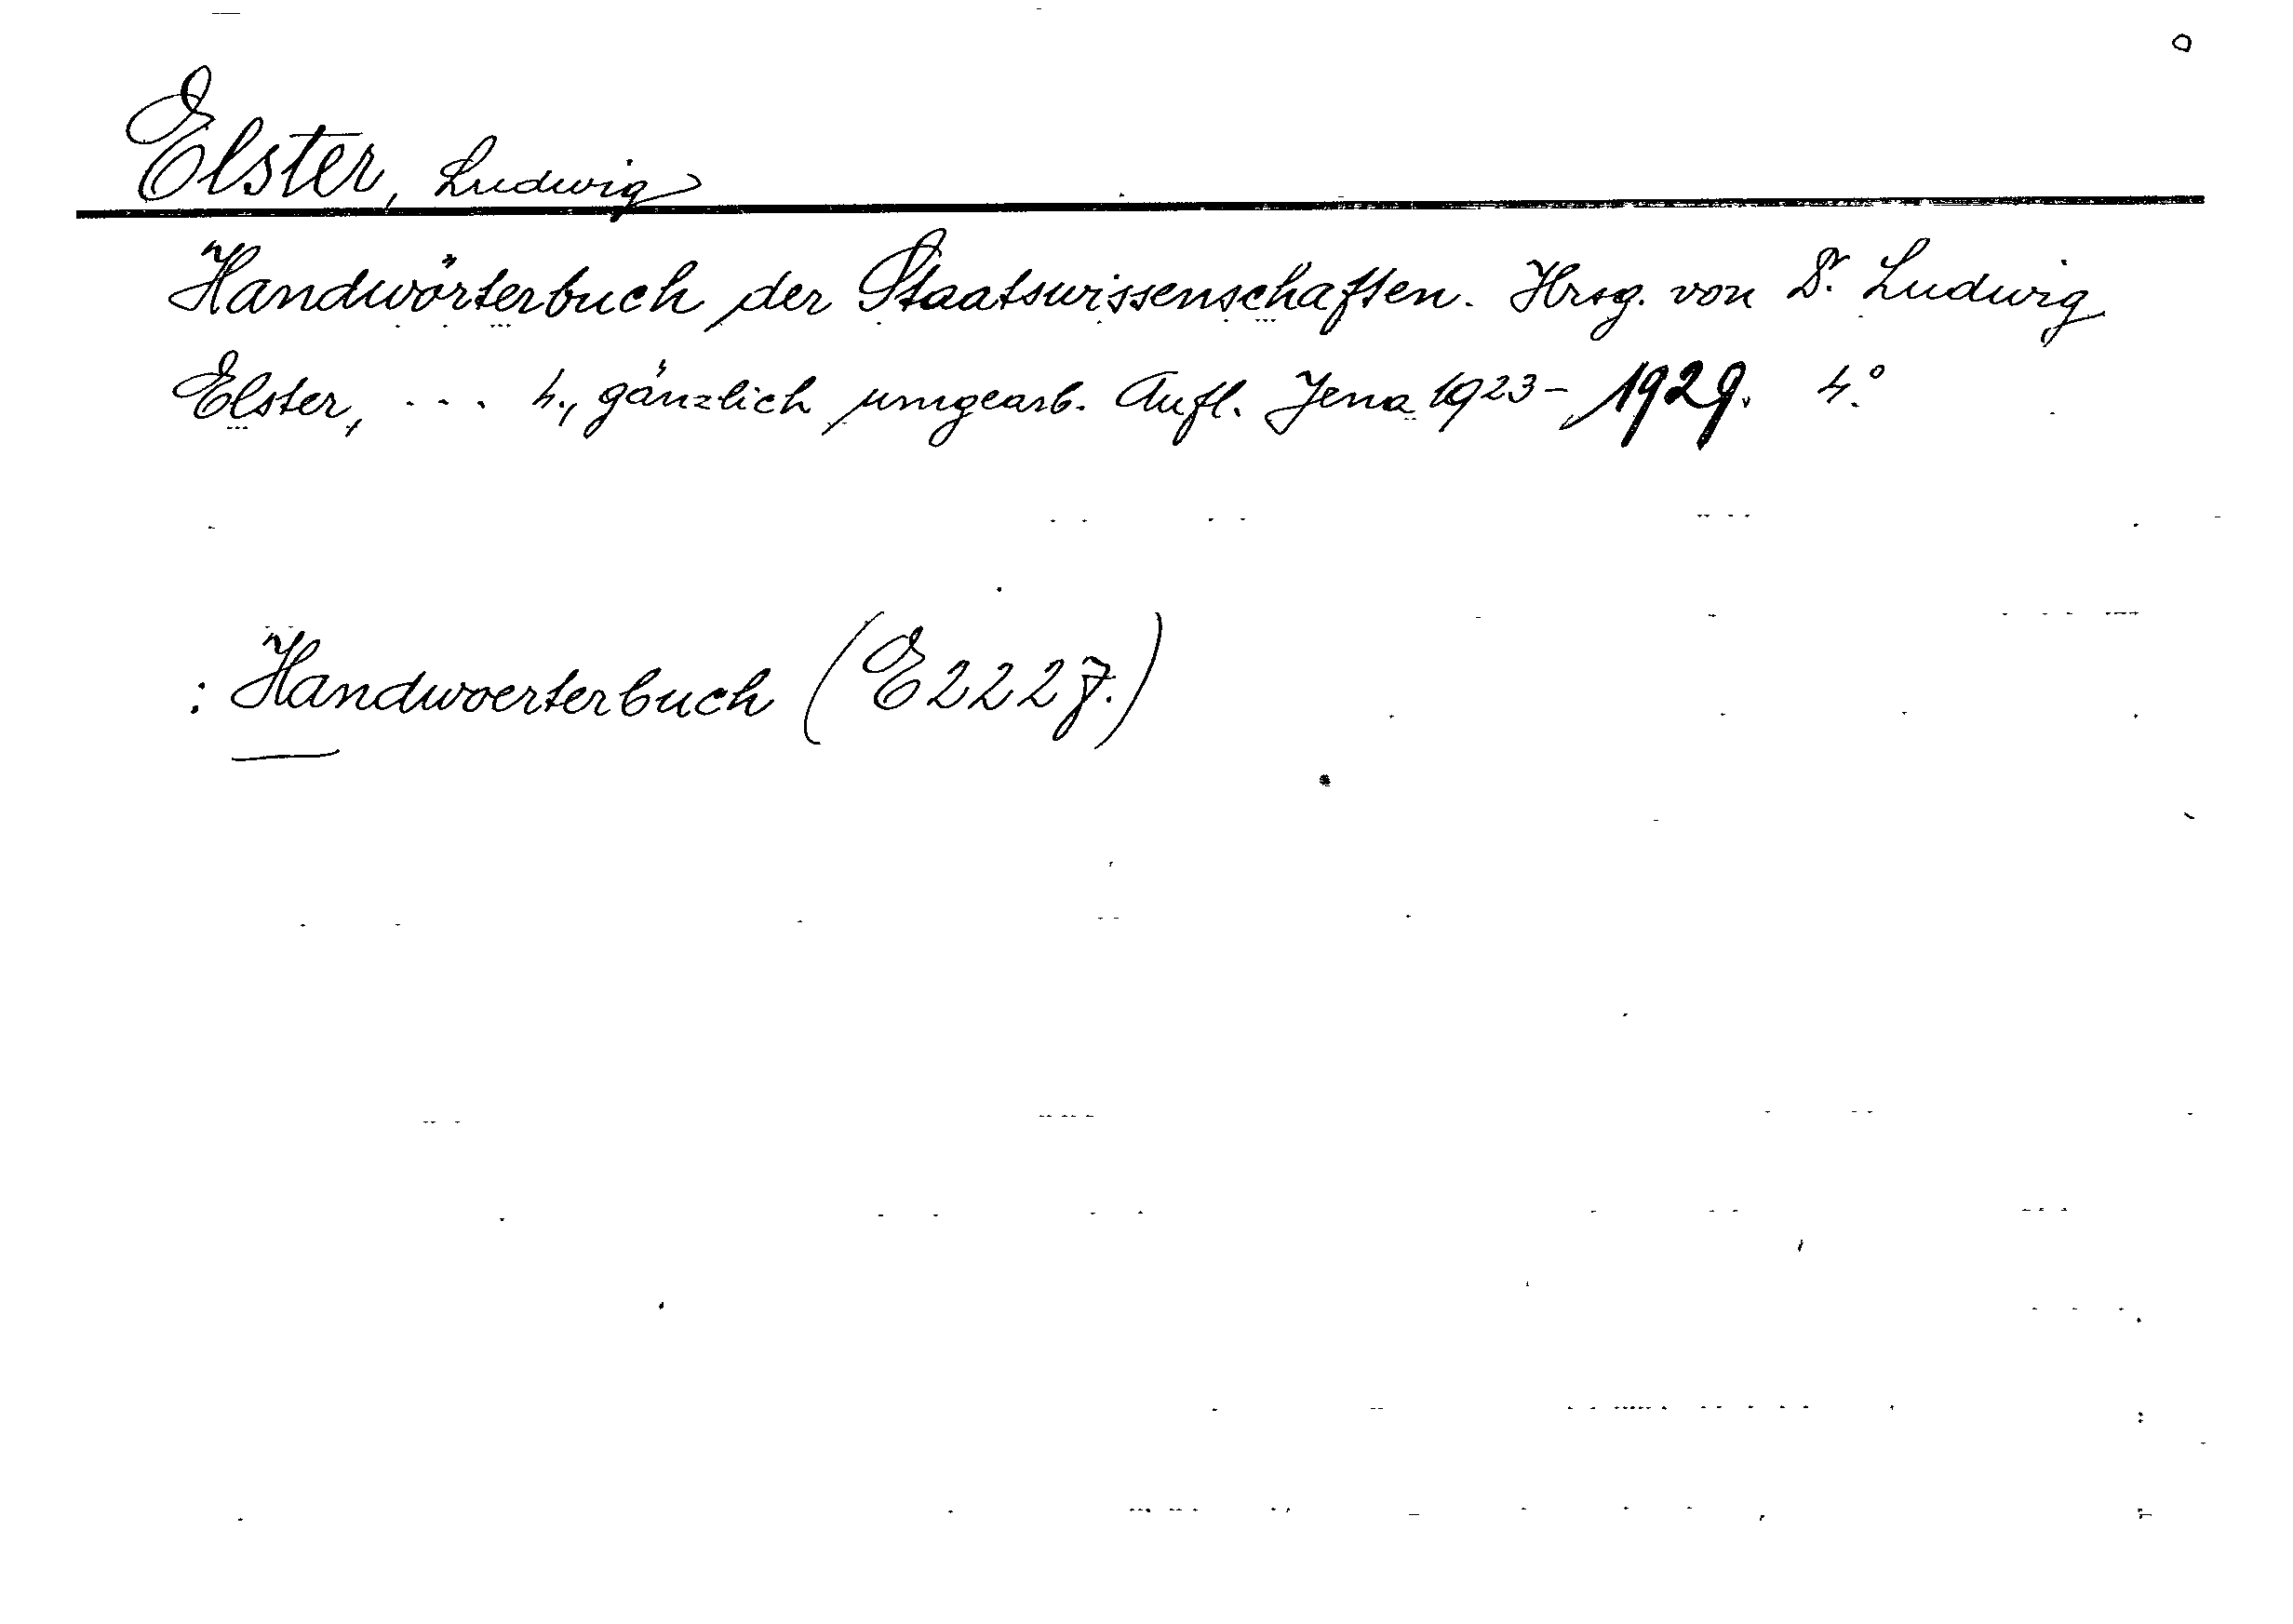 Elster, Ludwig
Handwörterbuch der Staatswissenschaften. Hrsg. von Dr. Ludwig
Elster, ... 4., gänzlich umgearb. Aufl. Jena 1923-1929. 4°.
: Handwoerterbuch (E 2227.)